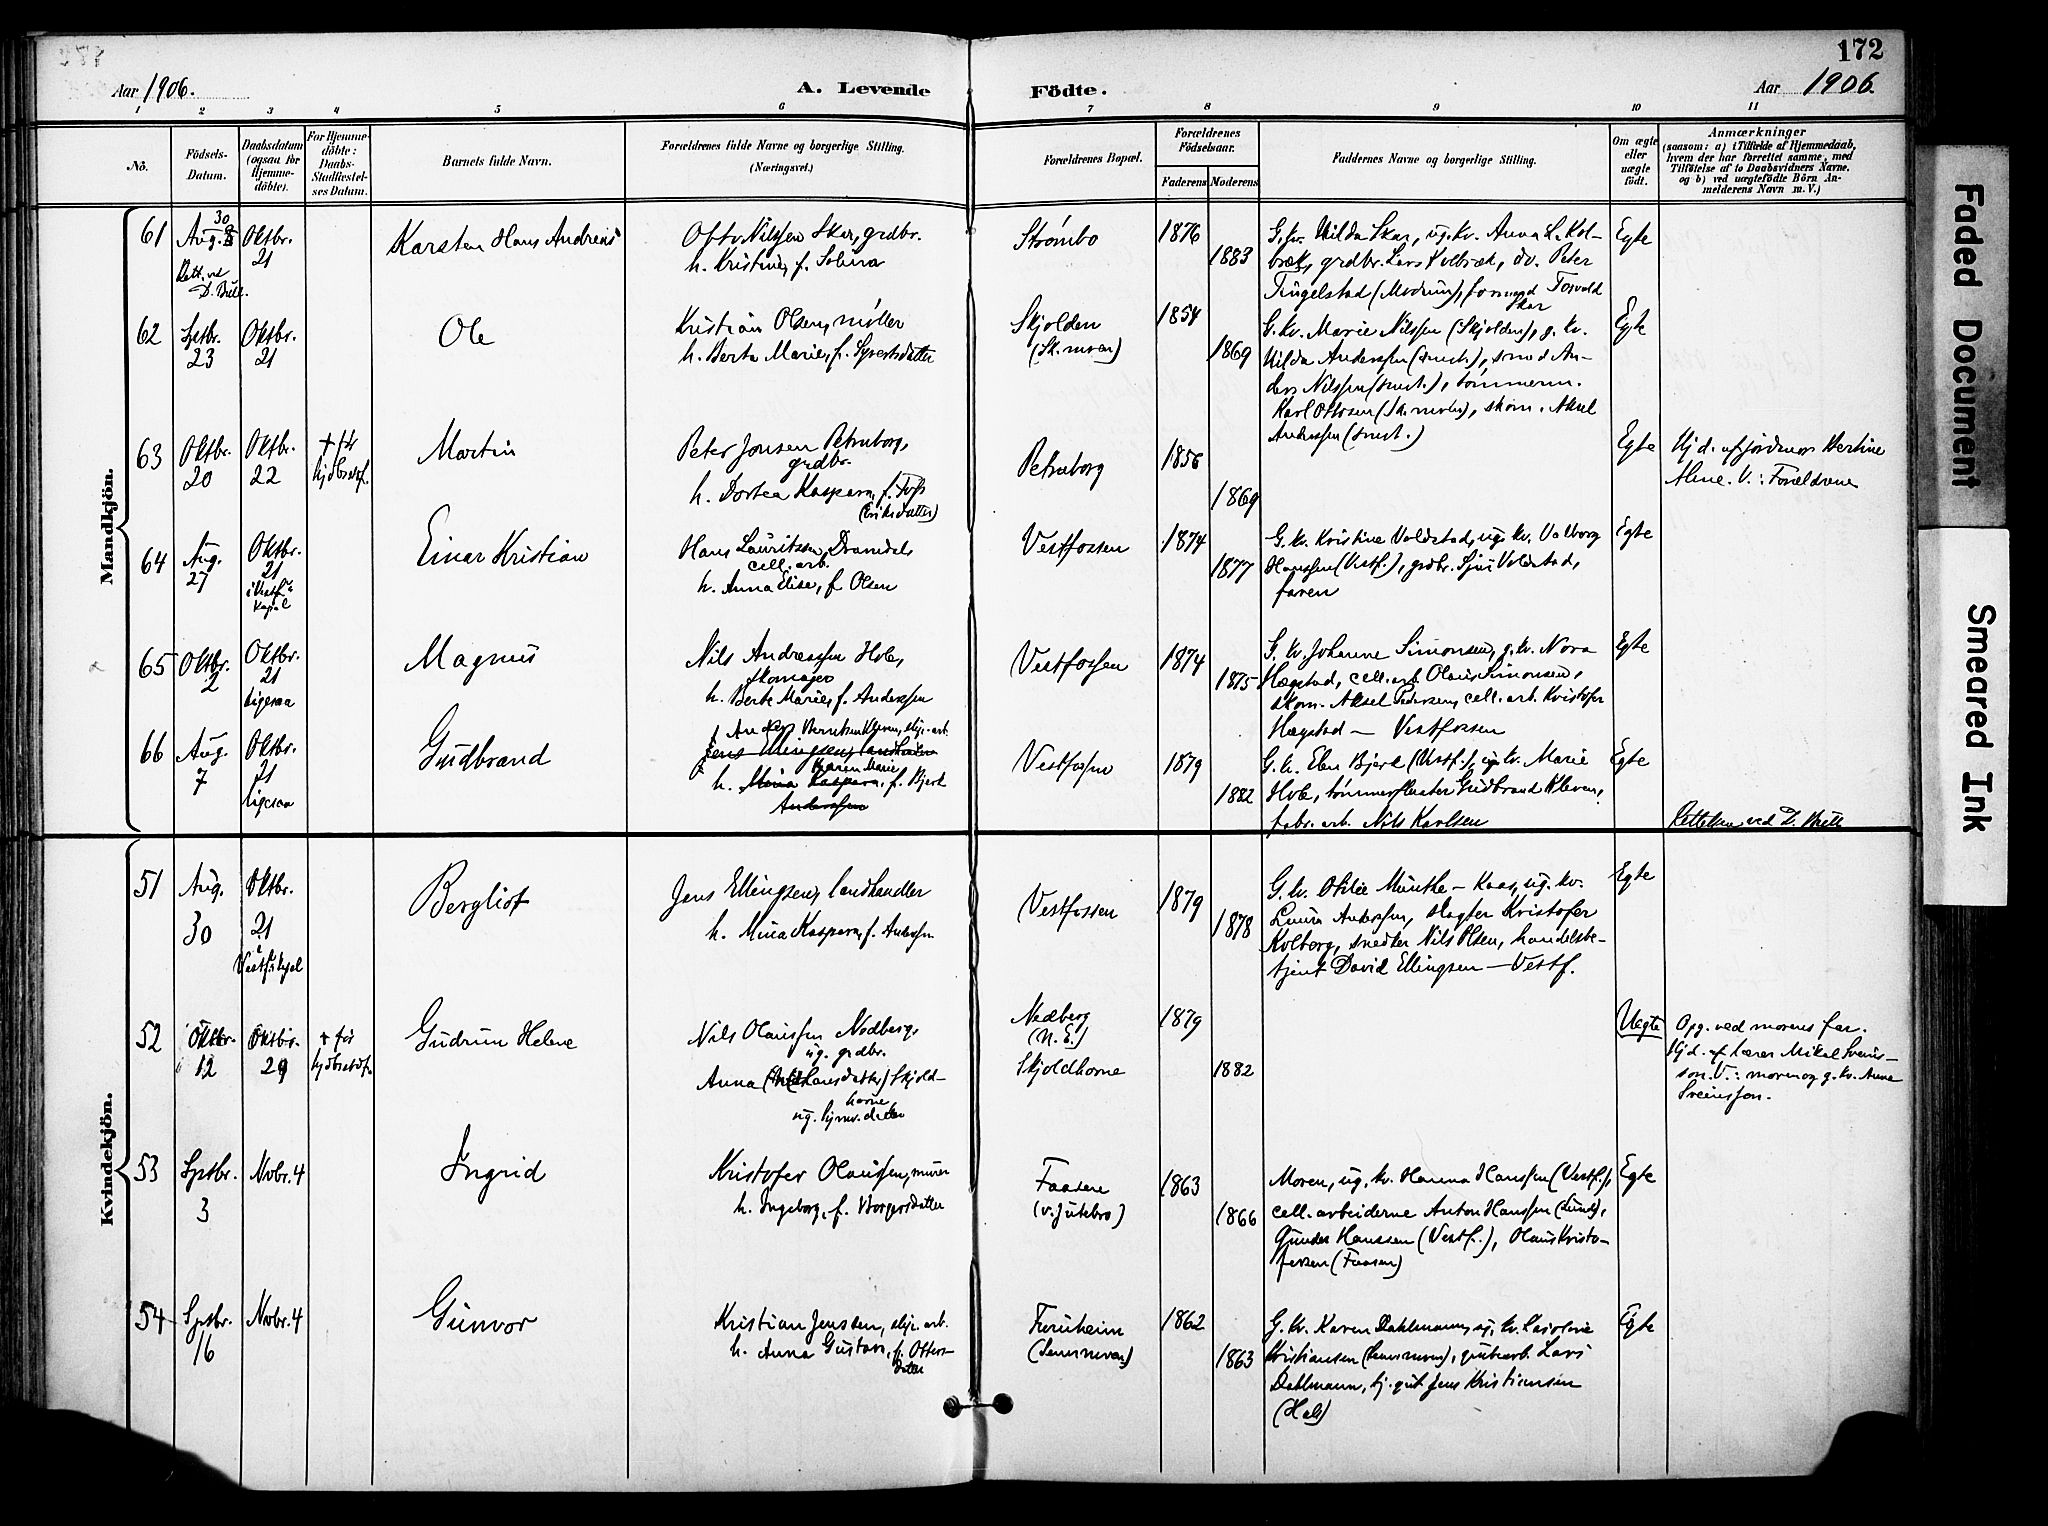 172
Aar 1906.
A. Levende Födte.
Aar 1906.
1 2 3 4 5 6 7 8 9 10 11
No.
Födsels-Datum.
Daabsdatum (ogsaa for Hjemmedöbte).
For Hjemmedöbte: Daabs-Stadfæstelses Datum.
Barnets fulde Navn.
Forældrenes fulde Navne og borgerlige Stilling. (Næringsvei.)
Forældrenes Bopæl.
Forældrenes Födselsaar.
Faderens Moderens
Faddernes Navne og borgerlige Stilling.
Om ægte eller uægte födt.
Anmærkninger
(saasom: a) i Tilfælde af Hjemmedaab,
hvem der har forrettet samme, med
Tilföielse af to Daabsvidners Navne,
og b) ved uægtefödte Börn Anmelderens Navn m. V.)
Mandkjön.
61 Aug. 30 Oktbr. 21 Karsten Hans Andreas
Otto Nilssen Skar, grdbr.
h. Kristine, f. Solina
Strømbo 1876 1883
G. kv. Hilda Skar, ug. kv. Anna L. Kolbræk, grdbr. Lars Kolbræk, do. Peter
Tingelstad (Modum), formand Torvald Skar
Egte
Rett. ved D. Bull.
62 Sptbr. 23 Oktbr. 21 Ole
Kristian Olsen, møller
h. Berte Marie, f. Syvertsdatter
Skjolden (Sk.moen) 1854 1869
G. kv. Marie Nilssen (Skjolden), g. kv.
Hilda Anderssen (smst.), smed Anders Nilssen (smst.), tømmerm.
Karl Ottosen (Sk.moen), skom. Aksel
Anderssen (smst.)
Egte
63 Oktbr. 20 Oktbr. 22 + før hjdbsstdf. Martin
Peter Jonsen Petersborg, grdbr.
h. Dortea Kaspara, f.
(Eriksdatter)
Petersborg 1856 1869
Egte
Hj.d. af jordmor Bertine
V.: Forældrene
64 Aug. 27 Oktbr. 21 i Vestf. Kapel Einar Kristian
Hans Lauritssen Dramdal, cell. arb.
h. Anna Elise, f. Olsen
Vestfossen 1874 1877
G. kv. Kristine Voldstad, ug. kv. Valborg
Hanssen (Vestf.), grdbr. Voldstad,
faren
Egte
65 Oktbr. 2 Oktbr. 21 ligesaa Magnus
Nils Anderssen Hole, skomager
h. Berte Marie, f. Anderssen
Vestfossen 1874 1875
G. kv. Johanne Simonsen, g. kv. Nora
Hægstad, cell. arb. Olaus Simonsen,
skom. Aksel Pedersen, cell. arb. Kristofer
Hægstad — Vestfossen
Egte
66 Aug. 7 Oktbr. 21 ligesaa Gudbrand
Berntsen Kleven, slip. arb.
Jens Ellingsen, landhandler
Karen Marie
h. Mina Kaspara, f. Bjerk
Anderssen
Vestfossen 1879 1882
G. k. Bjerk (Vestf.), ug. kv. Marie
Hole, tømmerfløter Gudbrand Kleven,
fabr. arb. Nils Karlsen
Egte
Rettelsen ved D. Bull
Kvindekjön.
51 Aug. 30 Oktbr. 21 i Vestf. kapel Bergliot
Jens Ellingsen, landhandler
h. Mina Kaspara, f. Anderssen
Vestfossen 1879 1878
G. kv. Otilie Munthe-Kaas, ug. kv.
Laura Anderssen, slagter Kristofer
Kolberg, snedker Nils Olsen, handelsbetjent David Ellingsen — Vestf.
Egte
52 Oktbr. 12 Oktbr. 29 + før hjdbsstdf. Gudrun Helene
Nils Olaussen Nedberg, ug. grdbr.
Anna Skjoldhorne
ug. hjmv. datter
Nedberg (N. E.)
Skjoldhorne 1879 1882
Uegte
Opg. ved morens far.
Hj.d. af lærer Mikal Sveinsson. V.: moren og g. kv. Anne
Sveinsson.
53 Sptbr. 3 Novbr. 4 Ingrid
Kristofer Olaussen, murer
h. Ingeborg, f. Borgersdatter
Faasen (v. Jutebro) 1863 1866
Moren, ug. kv. Hanna Hanssen (Vestf.),
cell. arbeiderne Anton Hanssen (Lund),
Gunder Hanssen (Vestf.), Olaus Kristofersen (Faasen)
Egte
54 Sptbr. 16 Novbr. 4 Gunvor
Kristian Jenssen, slip. arb.
h. Anna Gustava, f. Ottersdatter
Furuheim 1862 1863
G. kv. Karen Dahlmann, ug. kv. Karoline
Kristiansen, Lars
Dahlmann, tj. gut Jens Kristiansen
(Hals)
Egte
Faded Document
Smeared Ink